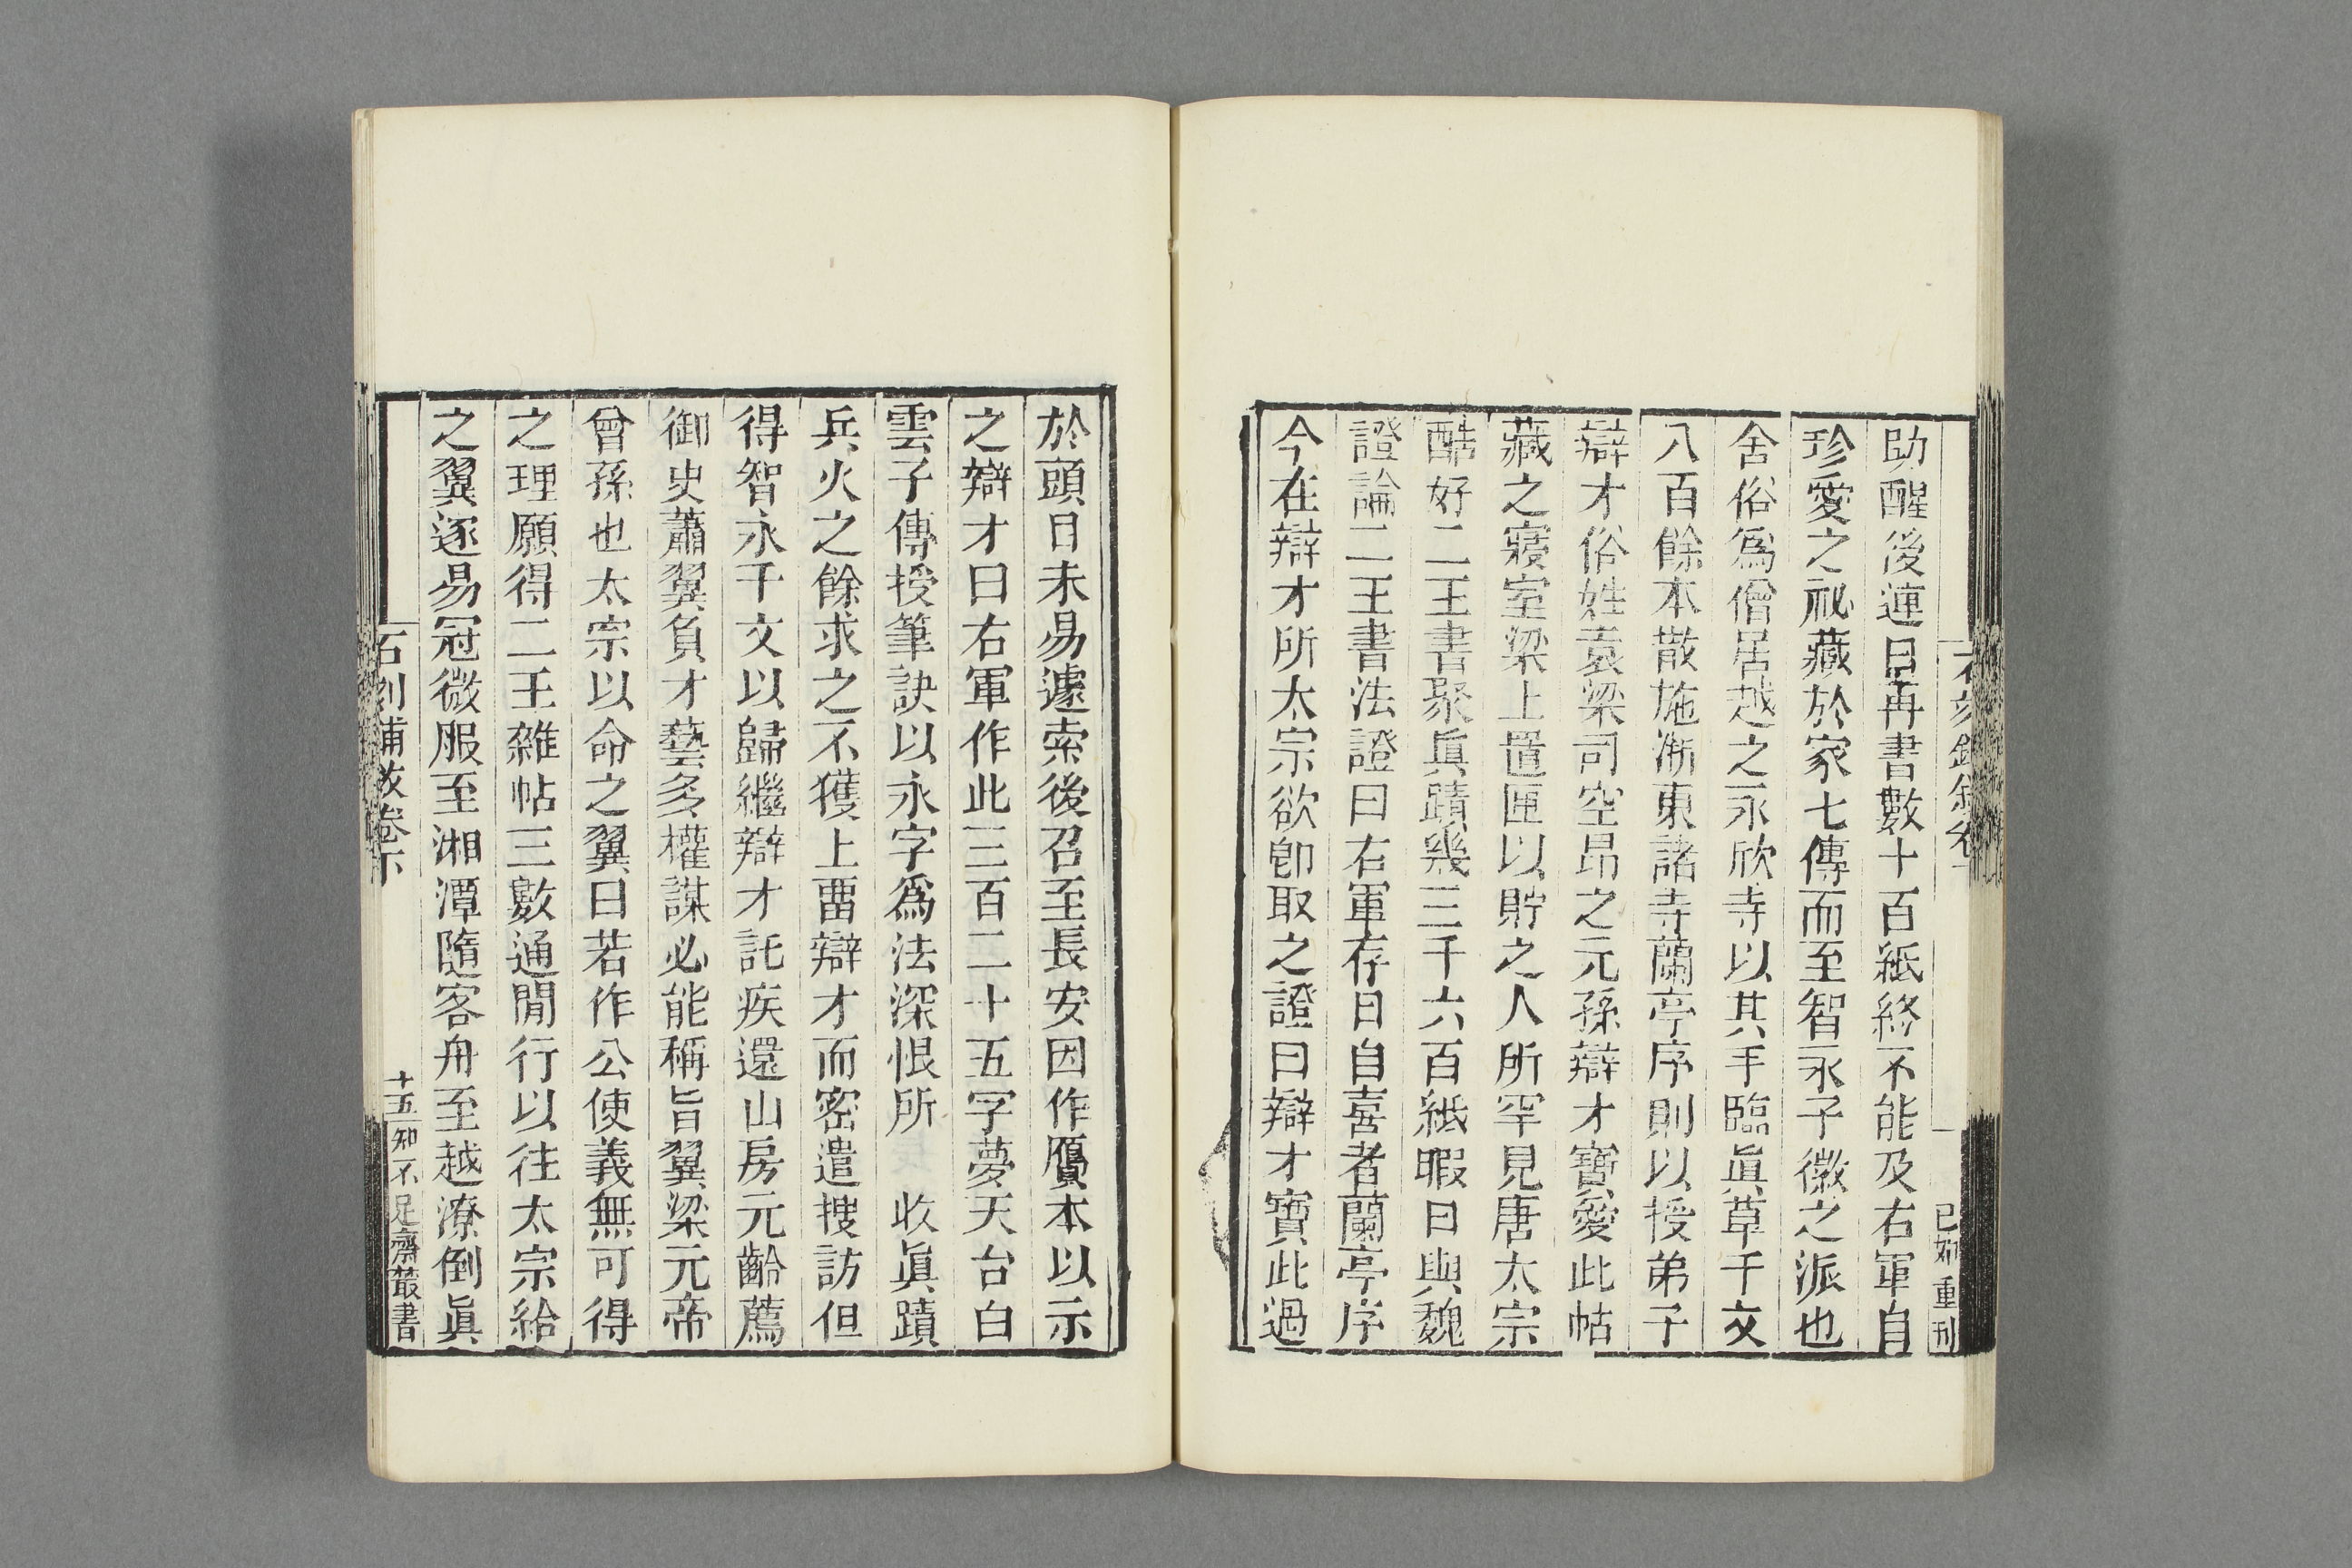 助醒後連日再書數十百紙終不能及右軍自
珍愛之祕藏於家七傳而至智永子徽之派也
舍俗爲僧居越之永欣寺以其手臨眞草千文
八百餘本散施浙東諸寺蘭亭序則以授弟子
辯才俗姓袁梁司空昂之元孫辯才寶愛此帖
藏之寢室梁上置匣以貯之人所罕見唐太宗
酷好二王書聚眞蹟幾三千六百紙暇日與魏
證論二王書法證曰右軍存日自喜者蘭亭序
今在辯才所太宗欲卽取之證曰辯才寶此過
於頭目未易遽索後召至長安因作贗本以示
之辯才曰右軍作此三百二十五字夢天台白
雲子傳授筆訣以永字爲法深恨所 收眞蹟
兵火之餘求之不獲上畱辯才而密遣搜訪但
得智永千文以歸繼辯才託疾還山房元齡薦
御史蕭翼負才藝多權謀必能稱旨翼梁元帝
曾孫也太宗以命之翼曰若作公使義無可得
之理願得二王雜帖三數通閒行以往太宗給
之翼逐易冠微服至湘潭隨客舟至越潦倒眞
石刻鋪敘卷下
十五
知不足齋叢書